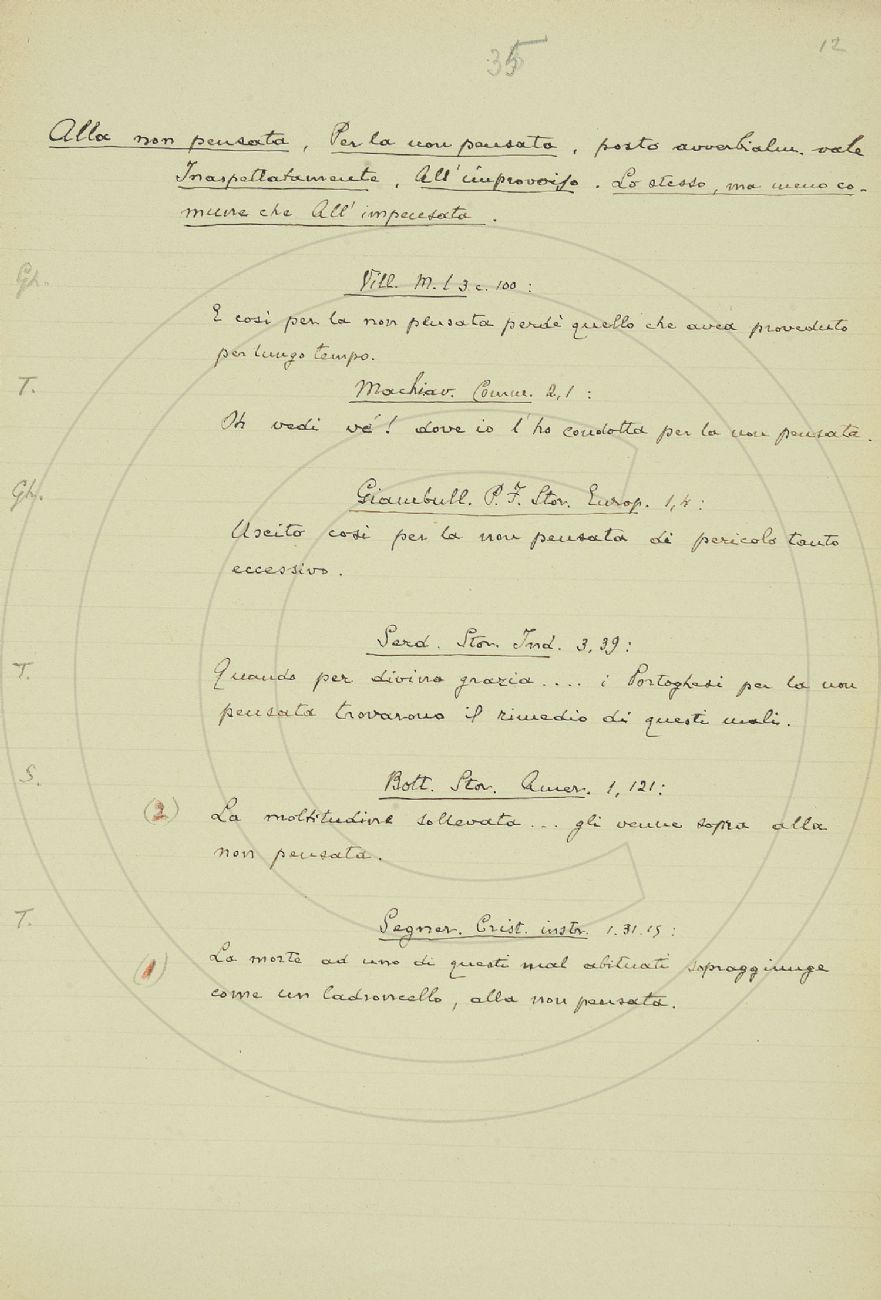 35
12
Alla non pensata, Per la non pensata, posto avverbialm. vale
Inaspettatamente, All'improvviso. Lo stesso, ma meno co-
mune che All'impensata.
Gh.
Vill. M. l 3 c. 100:
E così per la non pensata perdè quello che avea proveduto
per lungo tempo.
T.
Machiav. Comm. 2,1:
Oh vedi ve'! dove io l'ho condotta per la non pensata.
Gh.
Giambull. P. F. Stor. Europ. 1,4:
Uscito così per la non pensata di pericolo tanto
eccessivo.
Serd. Stor. Ind. 3,39:
T.
Quando per divina grazia.... i Portoghesi per la non
pensata trovarono il rimedio di questi mali.
S.
Bott. Stor. Amer. 1, 121:
(2)
La moltitudine sollevata... gli venne sopra alla
non pensata.
T.
Segner. Crist. instr. 1.31.15:
(1)
La morte ad uno di questi mal abituati sopraggiunge
come un ladroncello, alla non pensata.